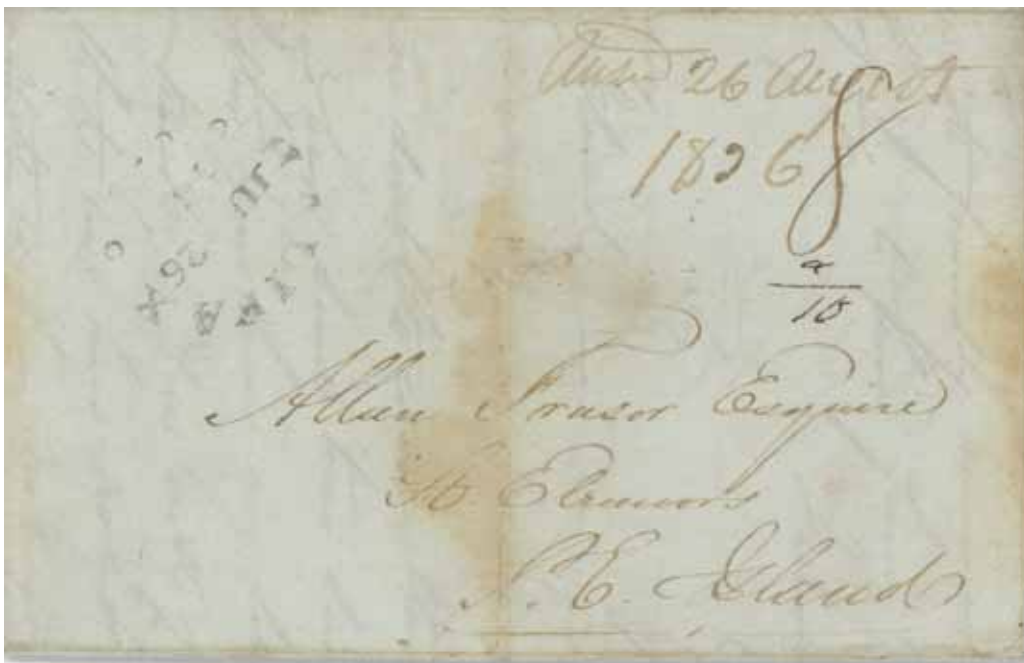 26 August
1836
8
10
Allan Frasor Esquire
St Eleanors
P. E. Island